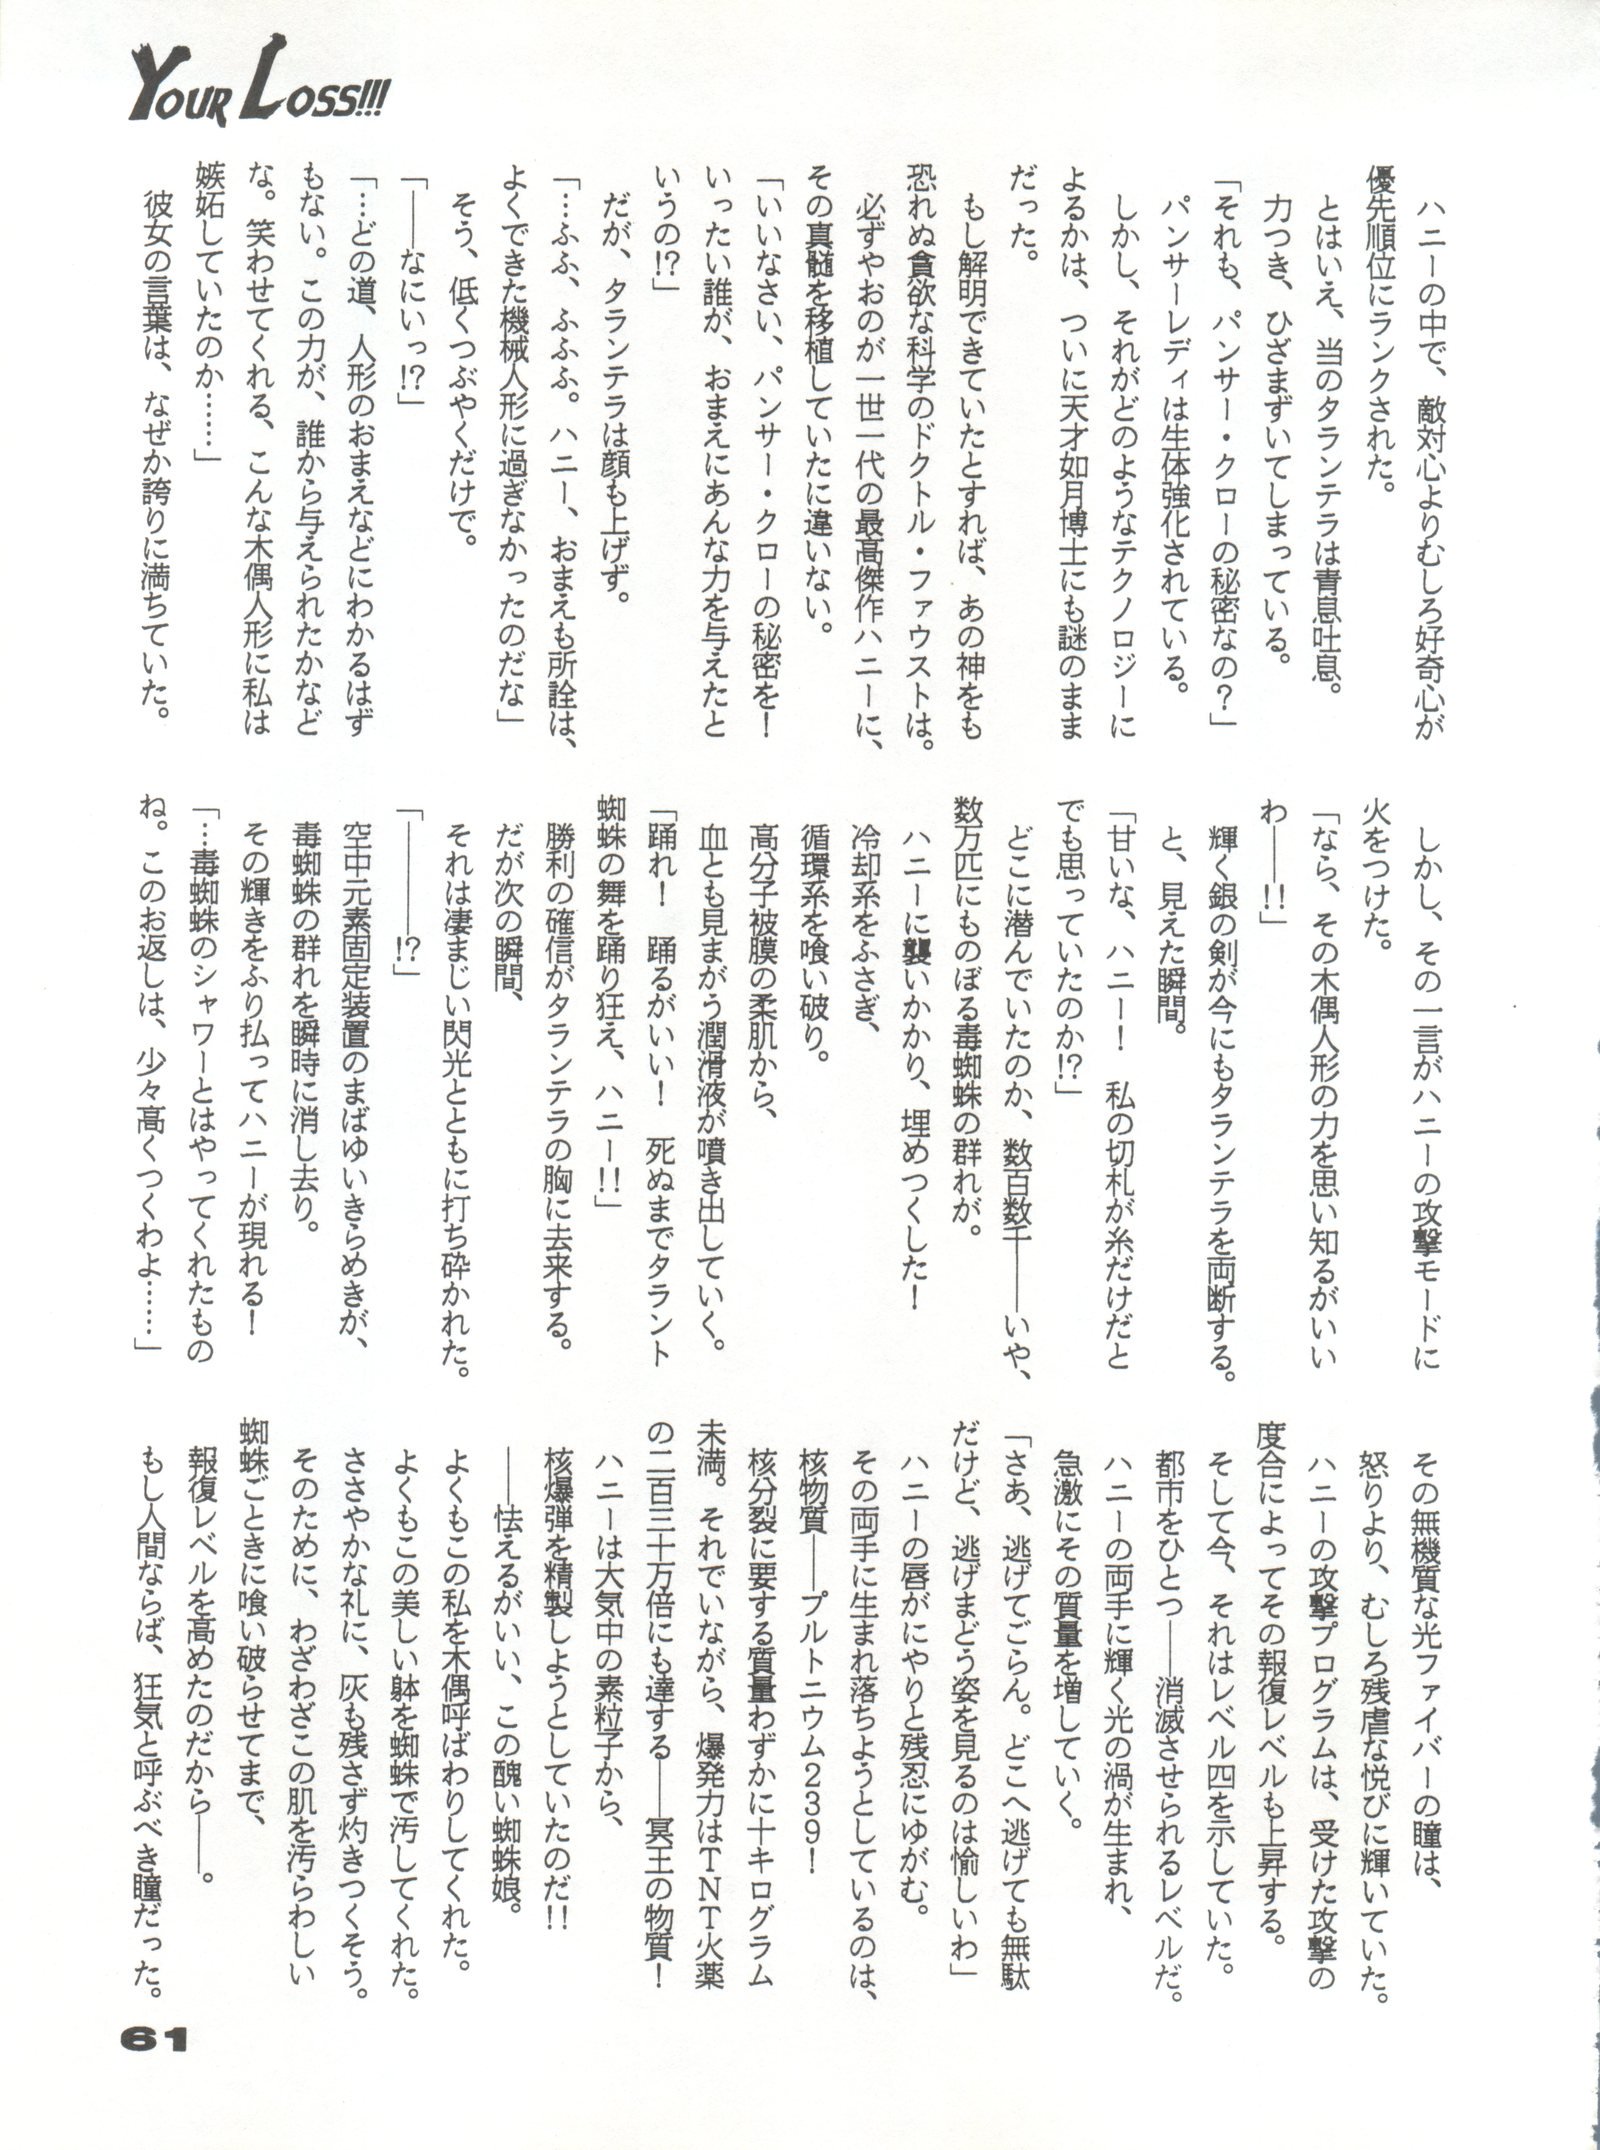 YOUR LOSS!!!
ハニーの中で、敵対心よりむしろ好奇心が
優先順位にランクされた。
とはいえ、当のタランテラは青息吐息。
力つき、ひざまずいてしまっている。
「それも、パンサー・クローの秘密なの？」
パンサーレディは生体強化されている。
しかし、それがどのようなテクノロジーに
よるかは、ついに天才如月博士にも謎のまま
だった。
もし解明できていたとすれば、あの神をも
恐れぬ貪欲な科学のドクトル・ファウストは。
必ずやおのが一世一代の最高傑作ハニーに、
その真髄を移植していたに違いない。
「いいなさい、パンサー・クローの秘密を！
いったい誰が、おまえにあんな力を与えたと
いうの!?」
だが、タランテラは顔も上げず。
「…ふふ、ふふふ。ハニー、おまえも所詮は、
よくできた機械人形に過ぎなかったのだな」
そう、低くつぶやくだけで。
「――なにいっ!?」
「…どの道、人形のおまえなどにわかるはず
もない。この力が、誰から与えられたかなど
な。笑わせてくれる、こんな木偶人形に私は
嫉妬していたのか……」
彼女の言葉は、なぜか誇りに満ちていた。
しかし、その一言がハニーの攻撃モードに
火をつけた。
「なら、その木偶人形の力を思い知るがいい
わ――!!」
輝く銀の剣が今にもタランテラを両断する。
と、見えた瞬間。
「甘いな、ハニー！　私の切札が糸だけだと
でも思っていたのか!?」
どこに潜んでいたのか、数百数千――いや、
数万匹にものぼる毒蜘蛛の群れが。
ハニーに襲いかかり、埋めつくした！
冷却系をふさぎ、
循環系を喰い破り。
高分子被膜の柔肌から、
血とも見まがう潤滑液が噴き出していく。
「踊れ！　踊るがいい！　死ぬまでタラント
蜘蛛の舞を踊り狂え、ハニー!!」
勝利の確信がタランテラの胸に去来する。
だが次の瞬間、
それは凄まじい閃光とともに打ち砕かれた。
「――――!?」
空中元素固定装置のまばゆいきらめきが、
毒蜘蛛の群れを瞬時に消し去り。
その輝きをふり払ってハニーが現れる！
「…毒蜘蛛のシャワーとはやってくれたもの
ね。このお返しは、少々高くつくわよ……」
その無機質な光ファイバーの瞳は、
怒りより、むしろ残虐な悦びに輝いていた。
ハニーの攻撃プログラムは、受けた攻撃の
度合によってその報復レベルも上昇する。
そして今、それはレベル四を示していた。
都市をひとつ――消滅させられるレベルだ。
ハニーの両手に輝く光の渦が生まれ、
急激にその質量を増していく。
「さあ、逃げてごらん。どこへ逃げても無駄
だけど、逃げまどう姿を見るのは愉しいわ」
ハニーの唇がにやりと残忍にゆがむ。
その両手に生まれ落ちようとしているのは、
核物質――プルトニウム２３９！
核分裂に要する質量わずかに十キログラム
未満。それでいながら、爆発力はＴＮＴ火薬
の二百三十万倍にも達する――冥王の物質！
ハニーは大気中の素粒子から、
核爆弾を精製しようとしていたのだ!!
――怯えるがいい、この醜い蜘蛛娘。
よくもこの私を木偶呼ばわりしてくれた。
よくもこの美しい躰を蜘蛛で汚してくれた。
ささやかな礼に、灰も残さず灼きつくそう。
そのために、わざわざこの肌を汚らわしい
蜘蛛ごときに喰い破らせてまで、
報復レベルを高めたのだから――。
もし人間ならば、狂気と呼ぶべき瞳だった。
61